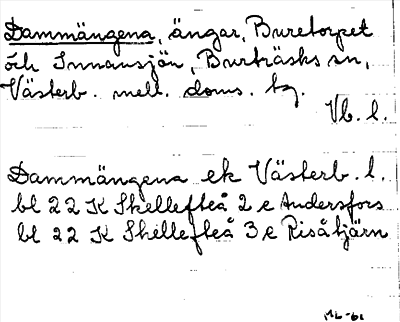 Dammängena, ängar, Buretorpet
och Innansjön, Burträsks sn,
Västerb. mell. doms. tg.
Vb. l.
Dammängena ek Västerb. l.
bl 22 K Skellefteå 2 e Andersfors
bl 22 K Skellefteå 3 e Risåtjärn
ML-61